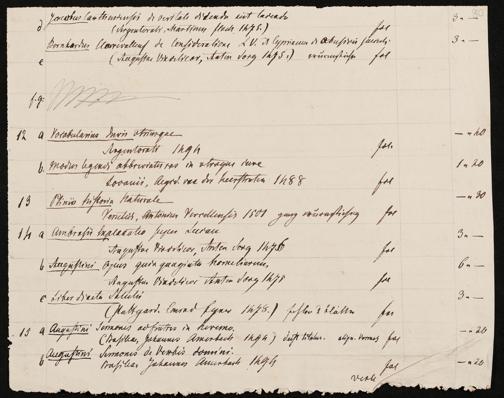 d Jacobus Carthusiensis de veritate dicenda aut tacenda
(Argentorati, Martinus Flach 1475.) fol 3 –
Bernhardus Claravallens. de Consideratione L.V. et Cyprianus de abusivis
e (Augustae Vindelicor, Anton Sorg 1475.) fol 3 –
f.g.
12 a Vocabularius Juris utriusque
Argentorati 1494 fol – 40
b. Modus legendi abbreviaturas in utroque iure
Lovanii, Aegid. van der Heerstraten 1488 fol 1 20
13 Plinii historia Naturale
Venetiis, Antonius Vercellensis 1501 ganz fol – 30
14 a Ambrosii Explanatio super Lucam
Augustae Vindelicor, Anton Sorg 1476 fol 3 –
b Augustini Opus quinquaginta homeliarum
Augustae Vindelicor Anton Sorg 1475 fol 6 –
c Liber dictus
(Conrad Fyner 1475.) fehlen 2 blätter fol 3 –
15 a Augustini Sermones ad fratres in heremo.
(Basileae, Johannes Amerbach 1494) fol – 20
b Augustini Sermones de Verbis domini.
Basileae Johannes Amerbach 1494 fol – 20